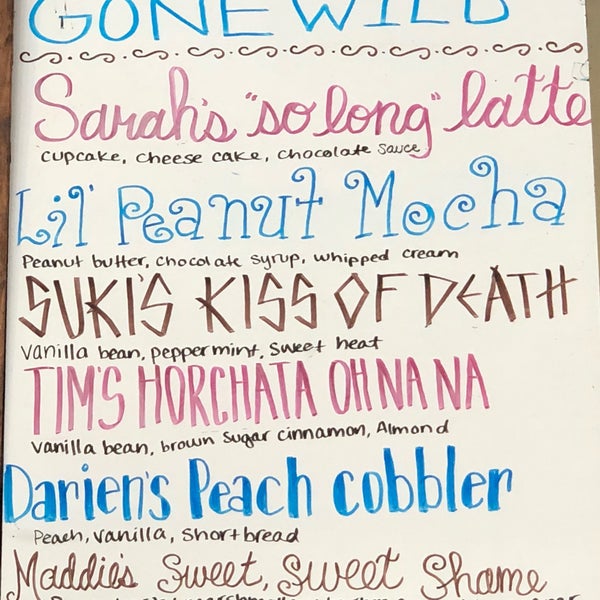 GONE WILD
Sarah's "so long" latte
cupcake, cheese cake, chocolate sauce
Lil' Peanut Mocha
Peanut butter, chocolate syrup, whipped cream
SUKI'S KISS OF DEATH
vanilla bean, peppermint, sweet heat
TIM'S HORCHATA OH NA NA
vanilla bean, brown sugar cinnamon, Almond
Darien's Peach cobbler
Peach, vanilla, shortbread
Maddie's Sweet, Sweet Shame